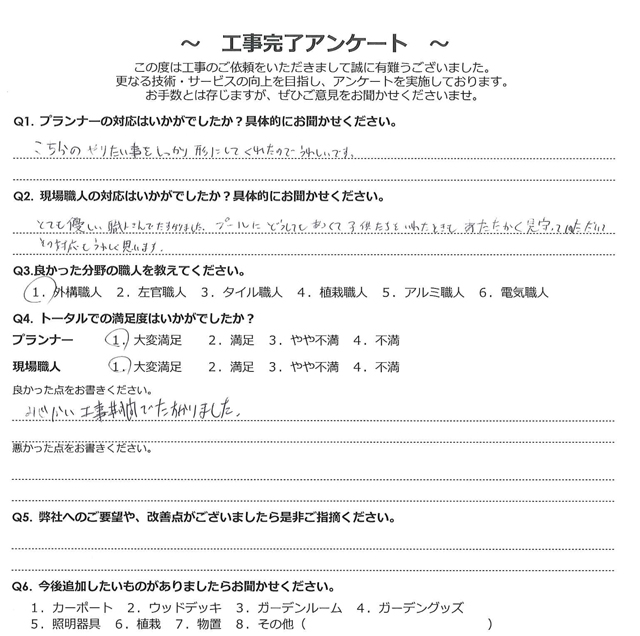 ～ 工事完了アンケート ～
この度は工事のご依頼をいただきまして誠に有難うございました。
更なる技術・サービスの向上を目指し、アンケートを実施しております。
お手数とは存じますが、ぜひご意見をお聞かせくださいませ。
Q1. プランナーの対応はいかがでしたか？具体的にお聞かせください。
こちらのやりたい事をしっかり形にしてくれたのでうれしいです。
Q2. 現場職人の対応はいかがでしたか？具体的にお聞かせください。
とても優しい職人さんでたすかりました。プールにどうしてもあつくて子供たちをいれたときも あたたかく見守っていただいて
その対応もうれしく思います。
Q3.良かった分野の職人を教えてください。
1．外構職人 2．左官職人 3．タイル職人 4．植栽職人 5．アルミ職人 6．電気職人
Q4. トータルでの満足度はいかがでしたか？
プランナー 1．大変満足 2．満足 3．やや不満 4．不満
現場職人 1．大変満足 2．満足 3．やや不満 4．不満
良かった点をお書きください。
みじかい工事期間でたすかりました。
悪かった点をお書きください。
Q5. 弊社へのご要望や、改善点がございましたら是非ご指摘ください。
Q6. 今後追加したいものがありましたらお聞かせください。
1．カーポート 2．ウッドデッキ 3．ガーデンルーム 4．ガーデングッズ
5．照明器具 6．植栽 7．物置 8．その他（ ）